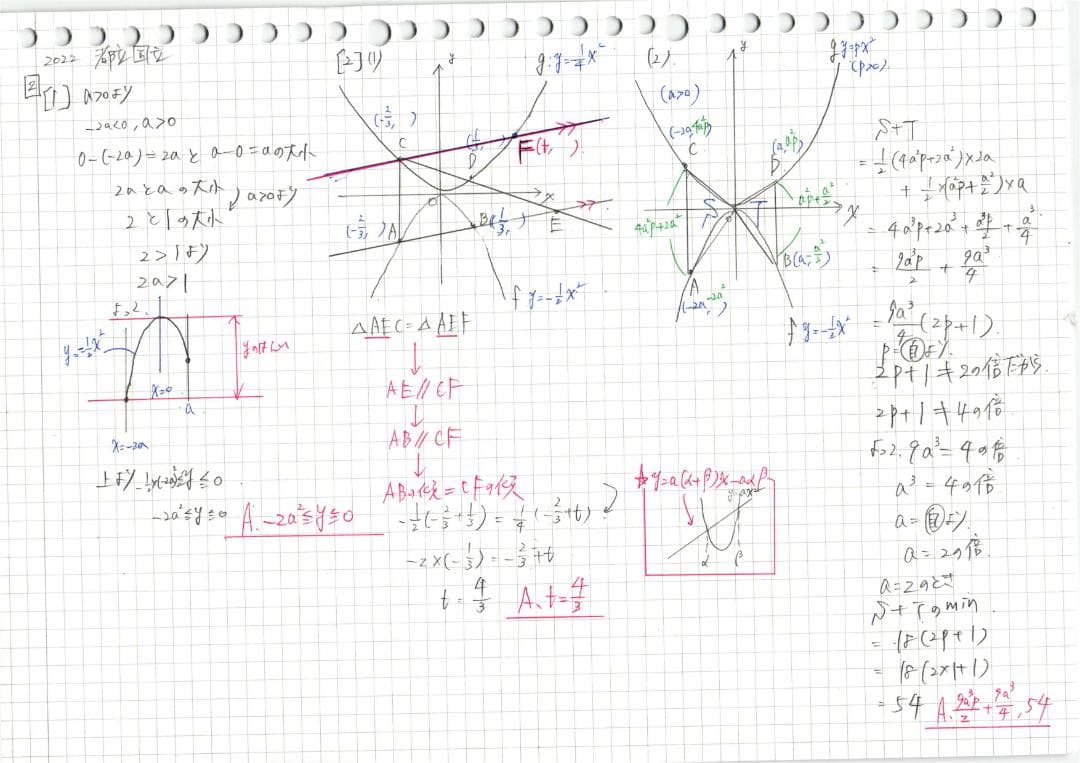 2022 都立国立
2 [1] a>0より
-2a<0, a>0
0-(-2a)=2aとa-0=aの大小
2aとaの大小
a>0より
2と1の大小
2>1より
2a>1
よって
y=-1/2x²
yのはんい
x=0
a
x=-2a
上より -1/2×(-2a)²≦y≦0
-2a²≦y≦0
A. -2a²≦y≦0
[2](1)
y
g: y=1/4x²
(-2/3, )
C
(1/3, )
D
F(t, )
x
O
(-2/3, )A
B(1/3, )
E
f y=-1/2x²
△AEC=△AEF
AE∥CF
AB∥CF
ABの傾=CFの傾
-1/2(-2/3+1/3)=1/4(-2/3+t)
-2×(-1/3)=-2/3+t
t=4/3
A. t=4/3
☆y=a(α+β)x-aαβ
y=ax²
α β
(2)
y
g y=px²
(p>0)
(a>0)
(-2a, 4a²p)
C
(a, a²p)
D
a²p+a²/2
4a²p+2a²
S
O
T
x
B(a, -a²/2)
A
(-2a, -2a²)
f y=-1/2x²
S+T
=1/2(4a²p+2a²)×2a
+1/2×(a²p+a²/2)×a
=4a³p+2a³+a³p/2+a³/4
=9a³p/2+9a³/4
=9a³/4(2p+1).
p=自より.
2p+1≠2の倍だから
2p+1≠4の倍
よって. 9a³=4の倍
a³=4の倍
a=自より.
a=2の倍
a=2のとき
S+Tのmin
=18(2p+1)
=18(2×1+1)
=54
A. 9a³p/2+9a³/4, 54